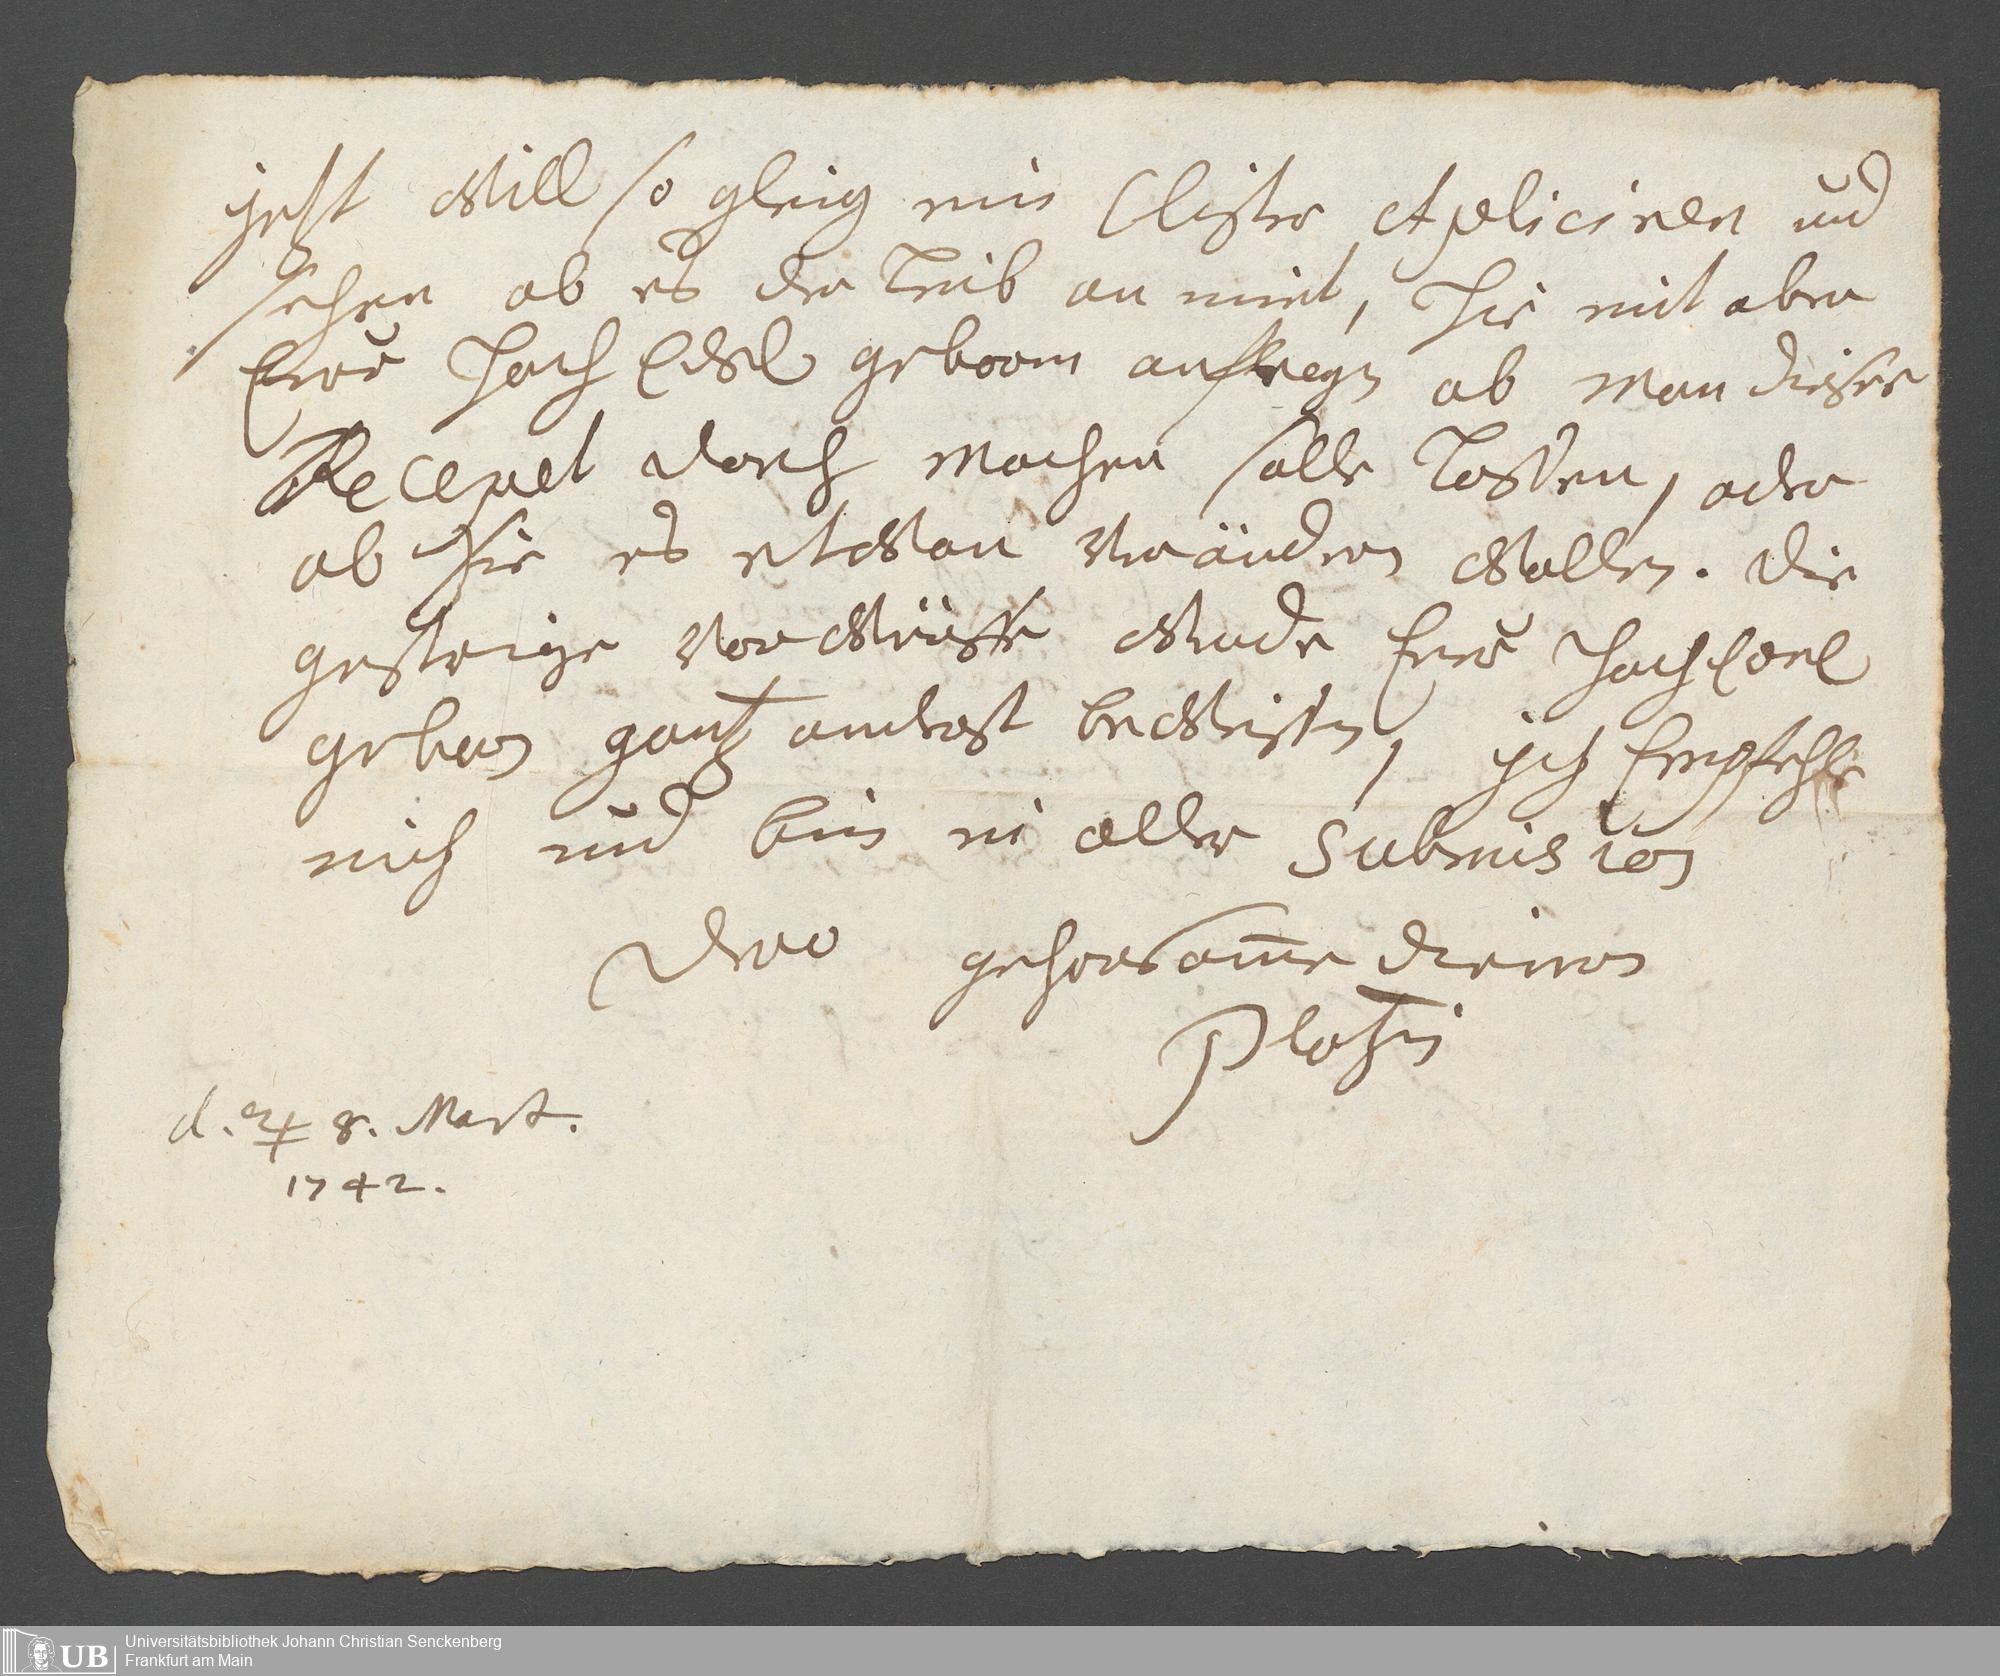 jetzt will so gleig ein Clister Apliciren und
sehen ob es der Leib an nimt, Hie mit aber
Euer Hoch Edel geboorn anfregen ob man dieses
Recepet doch machen solle Lassen, oder
ob sie es etwan verändern wollen. Die
gestrige vorwürffe wurde Euer Hoch Edel
geborn gantz anderst beweissen, ich Empfehle
mich und bin in aller Submision
Dero gehorsamme Dienern
d. ♃ 8. Mart.
1742.
Universitätsbibliothek Johann Christian Senckenberg
Frankfurt am Main
UB